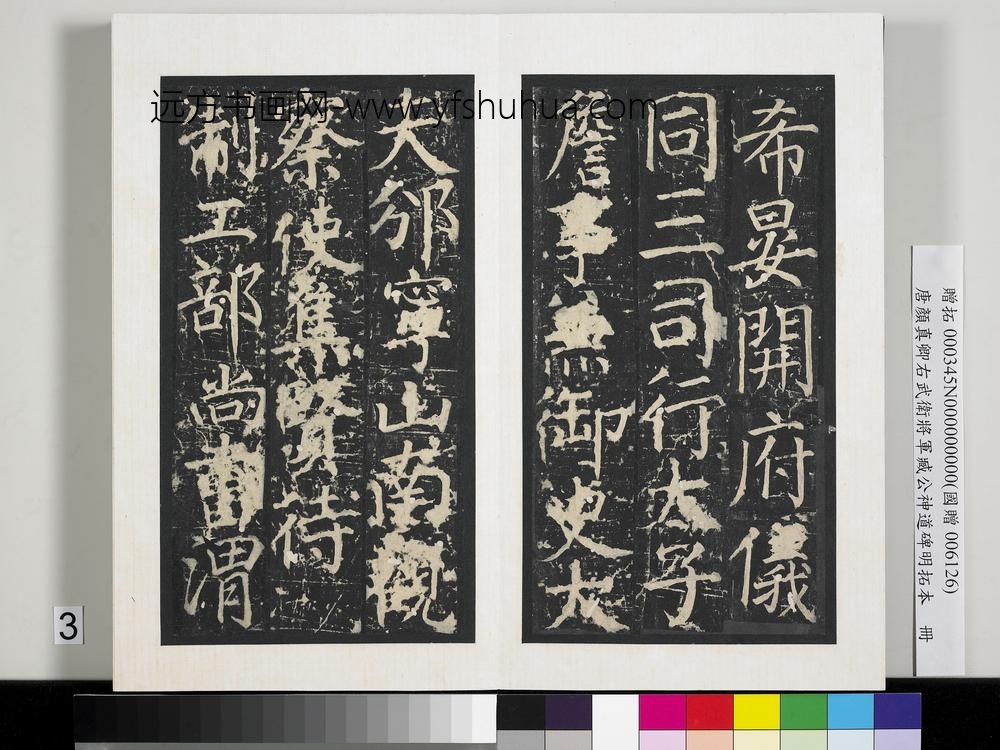 希晏開府儀
同三司行太子
詹事兼御史大
夫邠寧山南觀
察使集賢待
制工部尚書渭
远方书画网-www.yfshuhua.com
贈拓 000345N000000000(國贈 006126)
唐顏真卿右武衛將軍臧公神道碑明拓本 冊
3